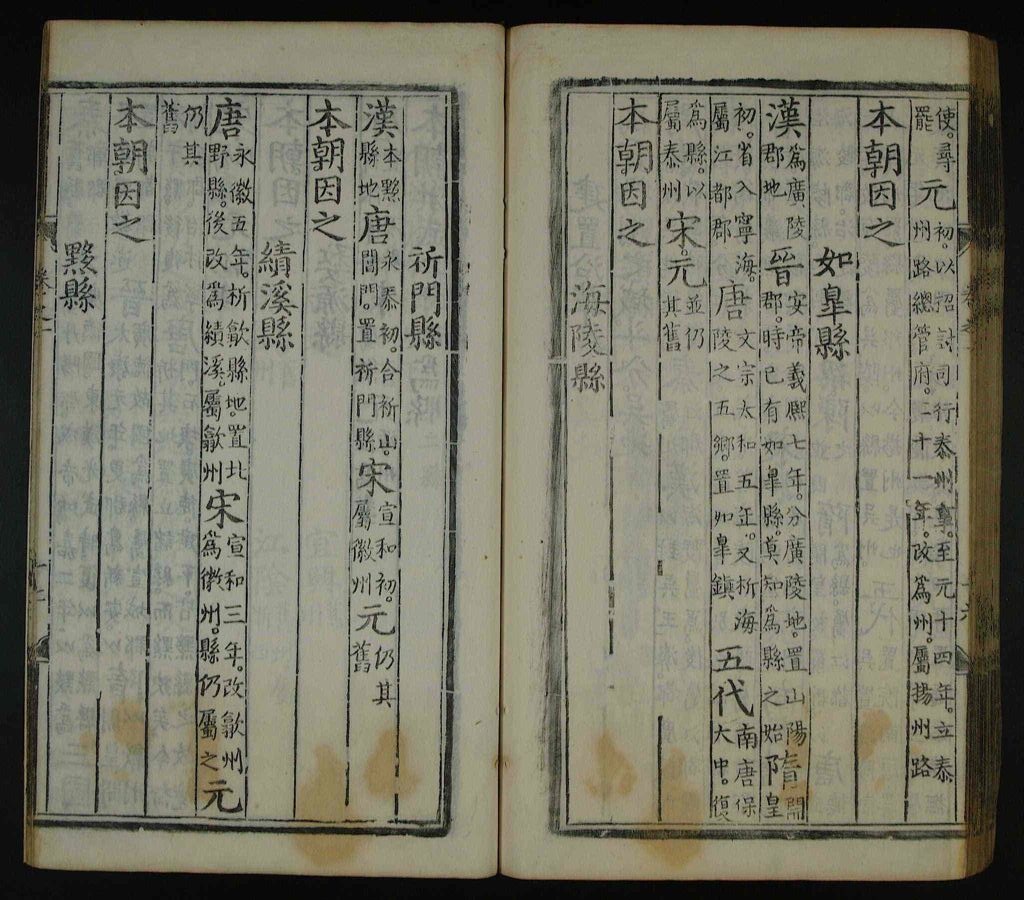 使。尋罷。元初。以招討司行泰州事。至元十四年。立泰州路總管府。二十一年。改爲州。屬揚州路
本朝因之
如臯縣
漢爲廣陵郡地晉安帝義熙七年。分廣陵地。置山陽郡。時已有如臯縣。莫知爲縣之始隋開皇
初。省入寧海。屬江都郡唐文宗太和五年。又析海陵之五鄉。置如臯鎮五代南唐保大中。復
爲縣。以屬泰州宋。元並仍其舊
本朝因之
海陵縣
祈門縣
漢本黟縣地唐永泰初。合祈山。閶門。置祈門縣宋宣和初。屬徽州元仍其舊
本朝因之
績溪縣
唐永徽五年。析歙縣地。置北野縣。後改爲績溪。屬歙州宋宣和三年。改歙州爲徽州。縣仍屬之元
仍其舊
本朝因之
黟縣